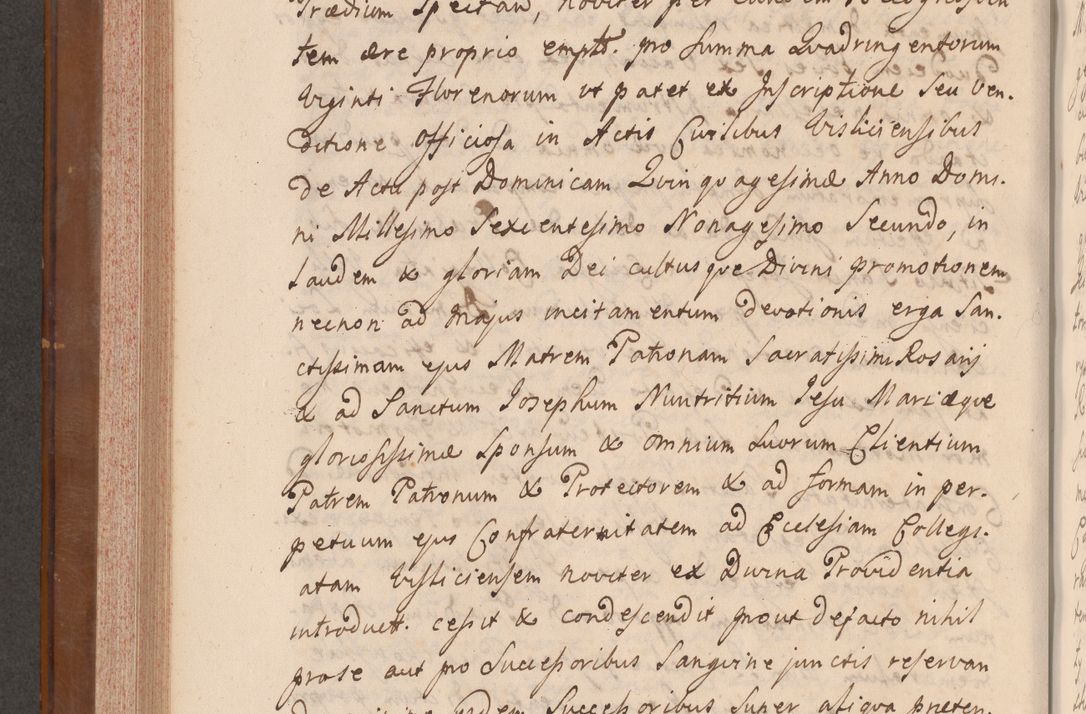 Prædium Spectan, noviter per eundem Recognoscen
tem ære proprio empt. pro Summa Quadringentorum
Viginti Florenorum vt patet ex Inscriptione Seu Ven.
ditione officiosa in Actis Civilibus Visliciensibus
de Actu post Dominicam Quinquagesimæ Anno Domi.
ni Millesimo Sexcentesimo Nonagesimo Secundo, in
Laudem & gloriam Dei cultusque Divini promotionem
necnon ad majus incitamentum devotionis erga San.
ctissimam ejus Matrem Patronam Sacratissimi Rosarij
& ad Sanctum Josephum Nuntritium Jesu Mariæque
gloriosissimæ Sponsum & omnium Suorum Clientium
Patrem Patronum & Protectorem & ad formam in per.
petuum ejus Confraternitatem ad Ecclesiam Collegi.
atam Visliciensem noviter ex Divina Providentia
introduct. cessit & condescendit prout defacto nihil
prose aut pro Successoribus Sanguine junctis reservan
eidem Successoribus Super aliqua præten.